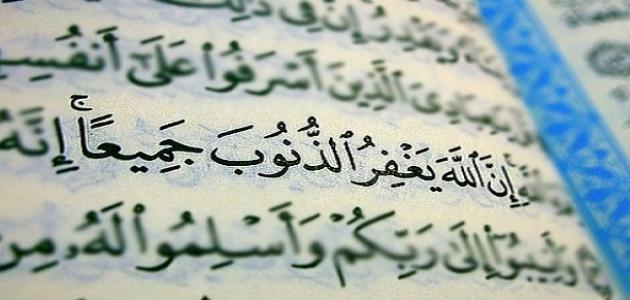 وَيَقْدِرُ إِنَّ فِي ذَٰلِكَ
يَٰعِبَادِيَ ٱلَّذِينَ أَسْرَفُوا۟ عَلَىٰٓ أَنفُسِ
ٱللَّهِ إِنَّ ٱللَّهَ يَغْفِرُ ٱلذُّنُوبَ جَمِيعًا ۚ إِنَّهُ
وَأَنِيبُوٓا۟ إِلَىٰ رَبِّكُمْ وَأَسْلِمُوا۟ لَهُۥ مِن